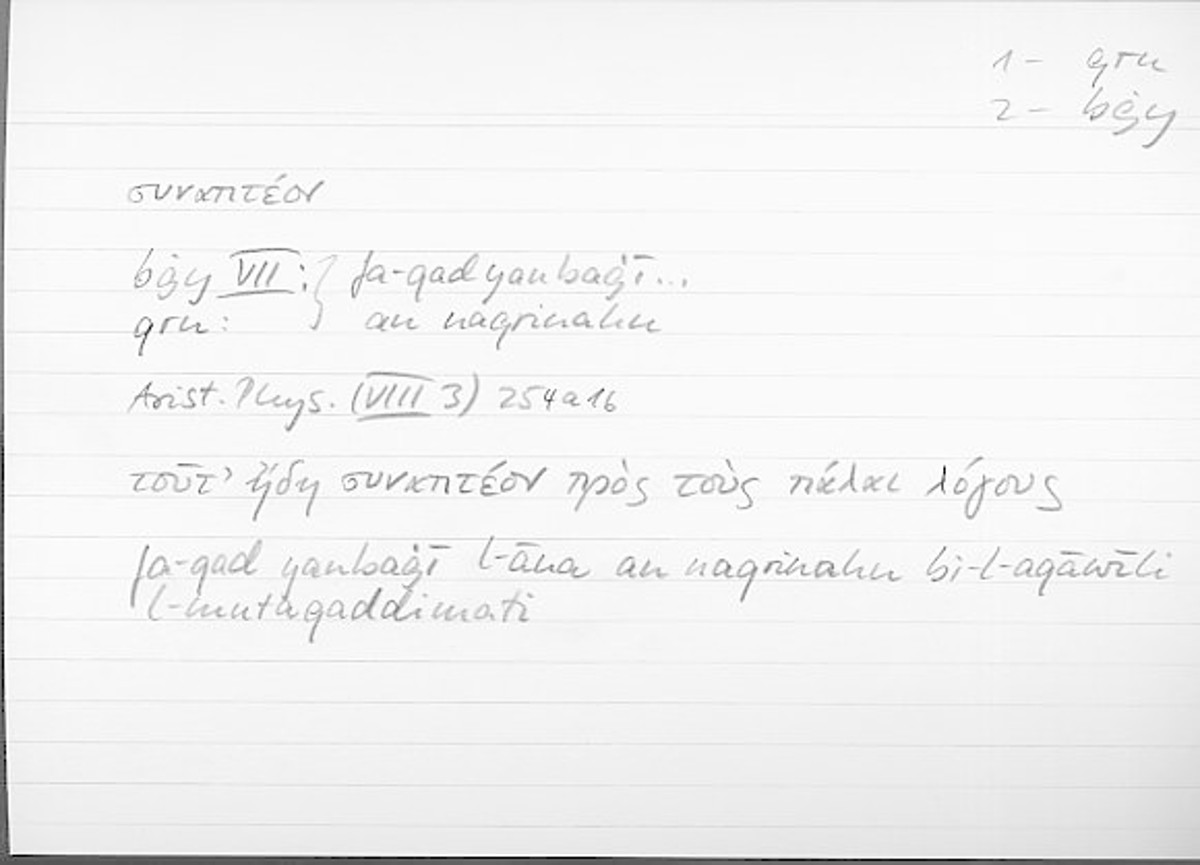 1 - qrn
2 - bġy
συναπτέον
bġy VII : } fa-qad yanbaġī...
qrn : an naqrinahu
Arist. Phys. (VIII 3) 254a16
τοῦτ’ ἤδη συναπτέον πρὸς τοὺς πάλαι λόγους
fa-qad yanbaġī l-āna an naqrinahu bi-l-aqāwīli
l-mutaqaddimati